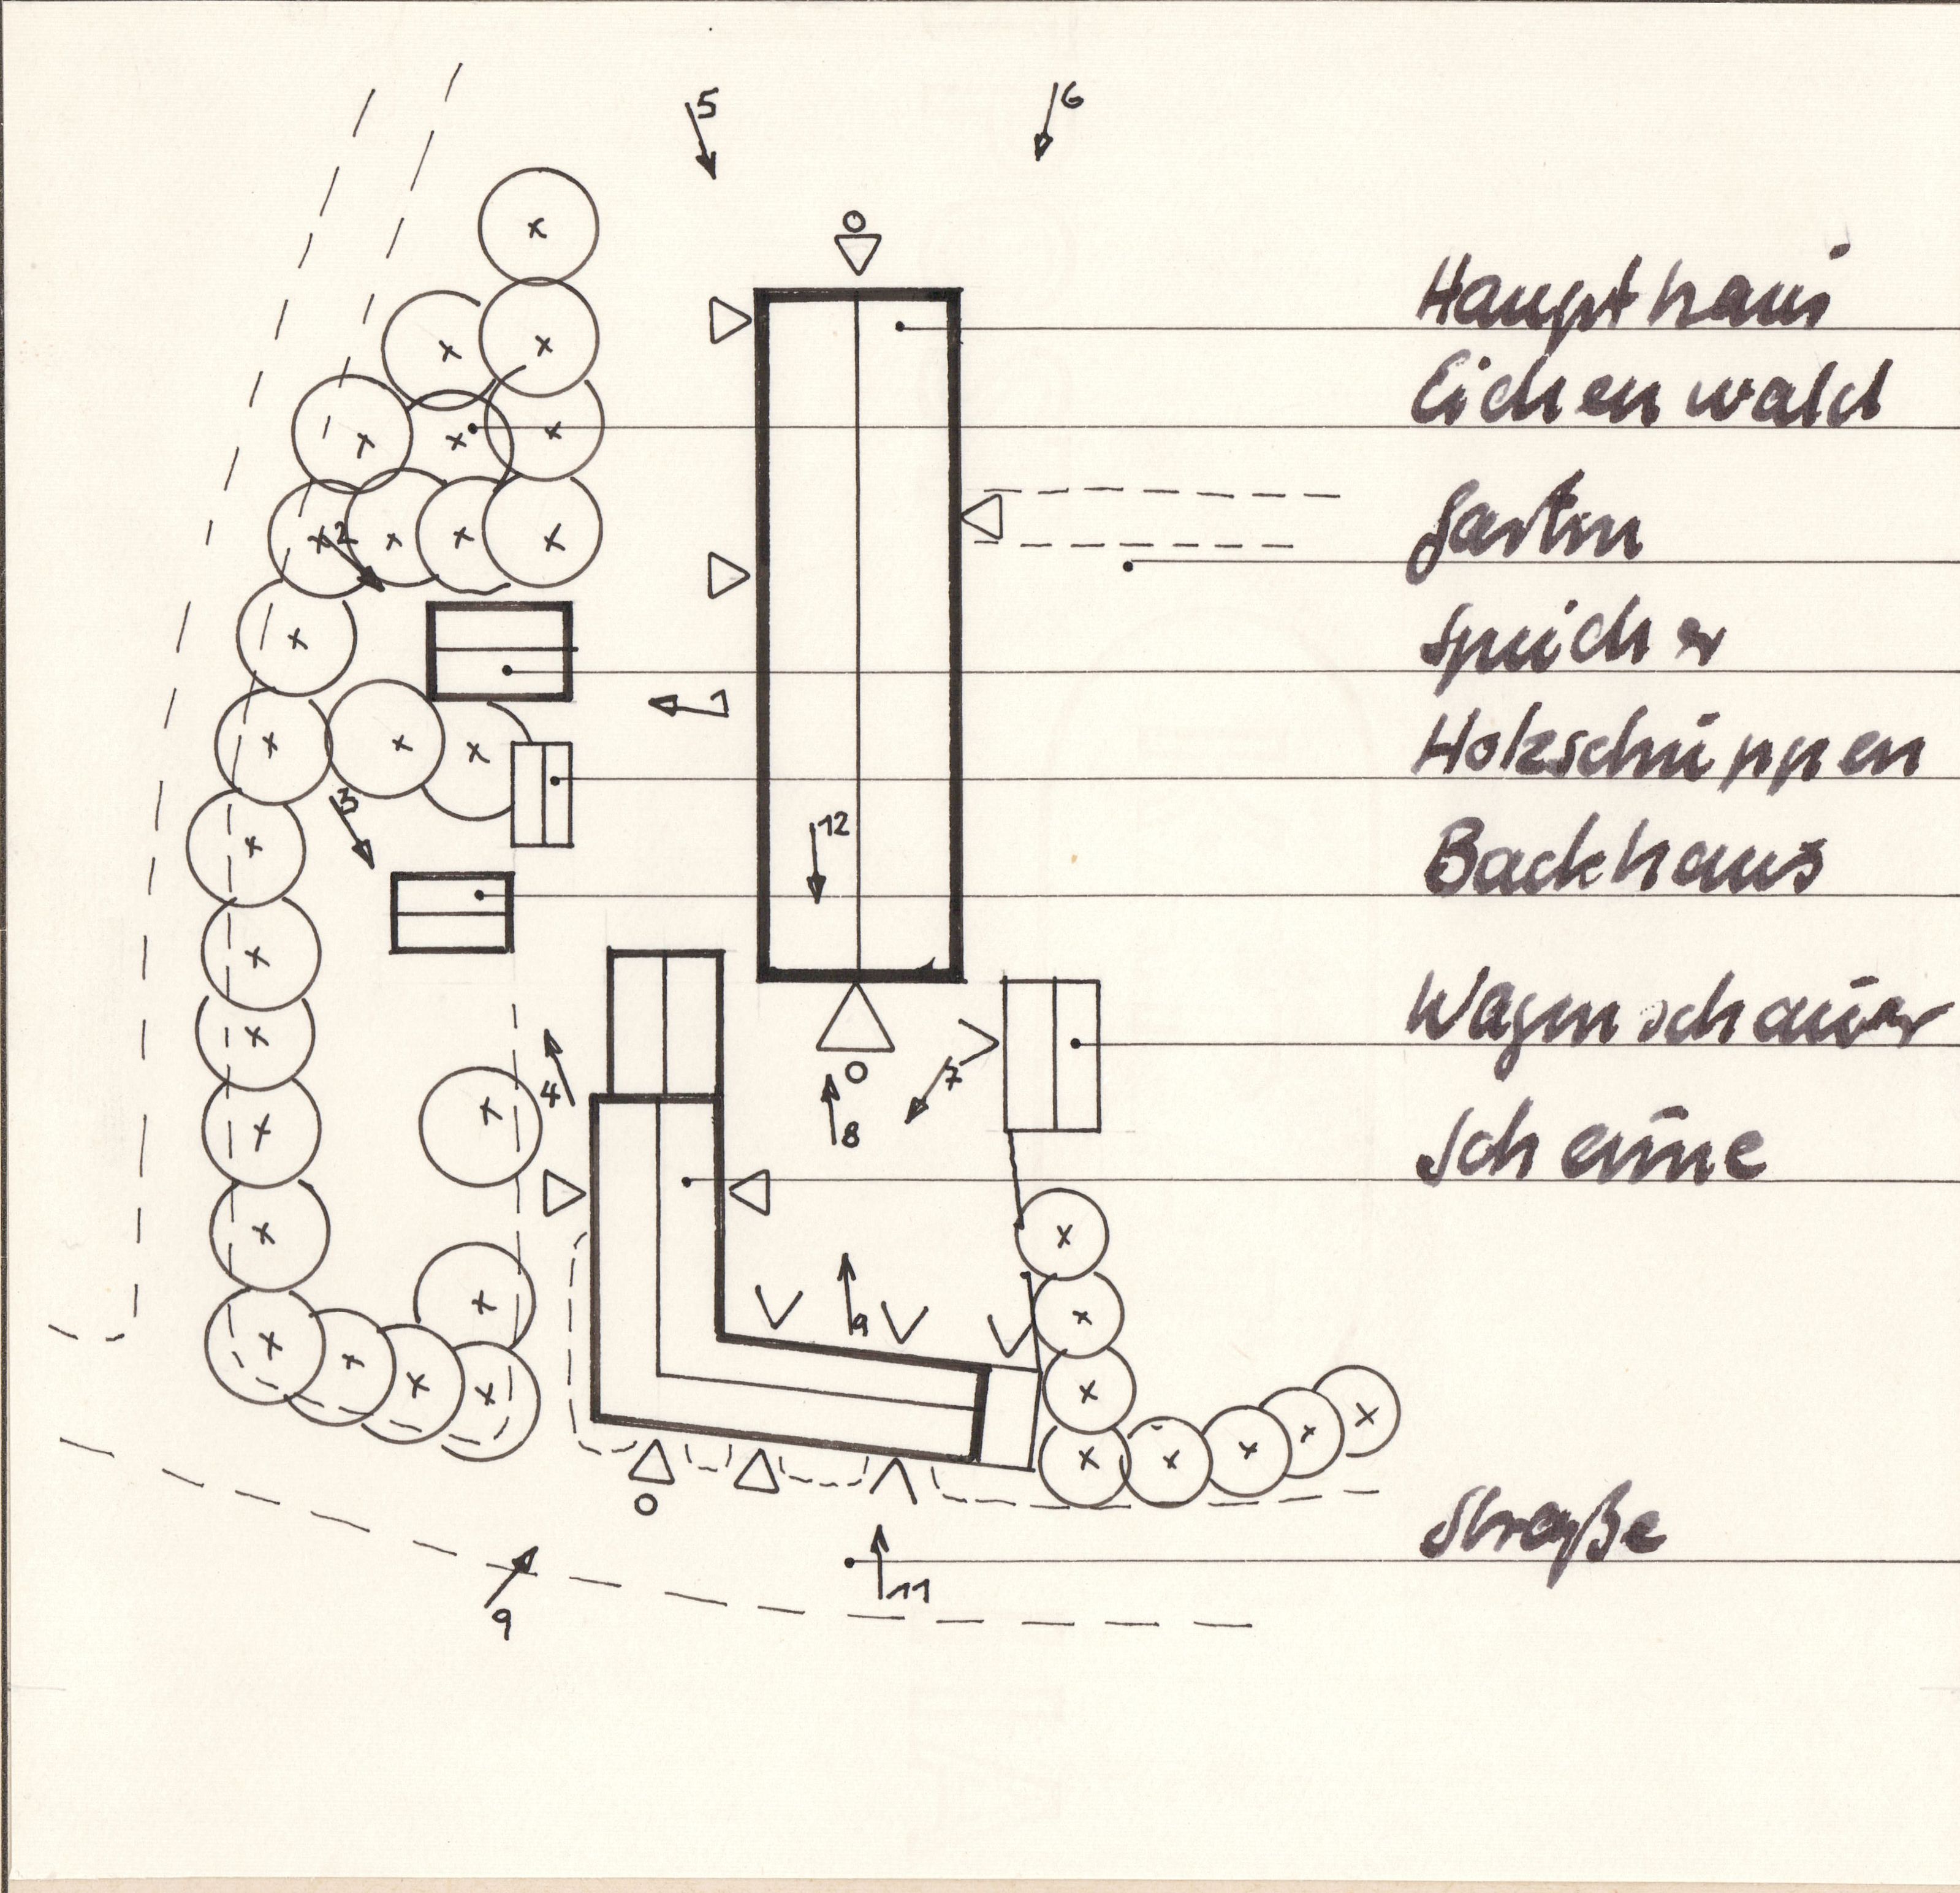 5
6
Haupthaus
Eichenwald
Garten
2
Speicher
1
Holzschuppen
3
12
Backhaus
Wagenschauer
7
4
8
Scheune
9
Straße
11
9